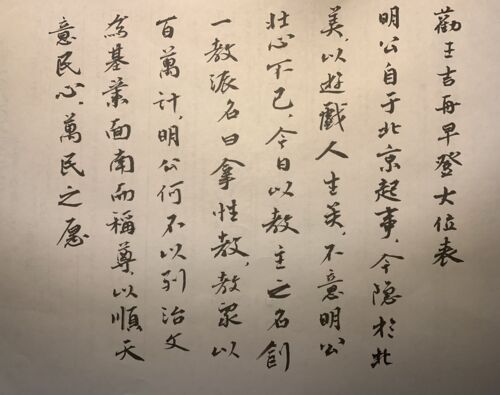 勸王吉再早登大位表
明公自于北京起事，今隐於北
美，以遊戲人生矣，不意明公
壮心不已，今日以教主之名創
一教派名曰拿性教，教眾以
百萬計，明公何不以列治文
為基業面南而稱尊，以順天
意民心，萬民之愿